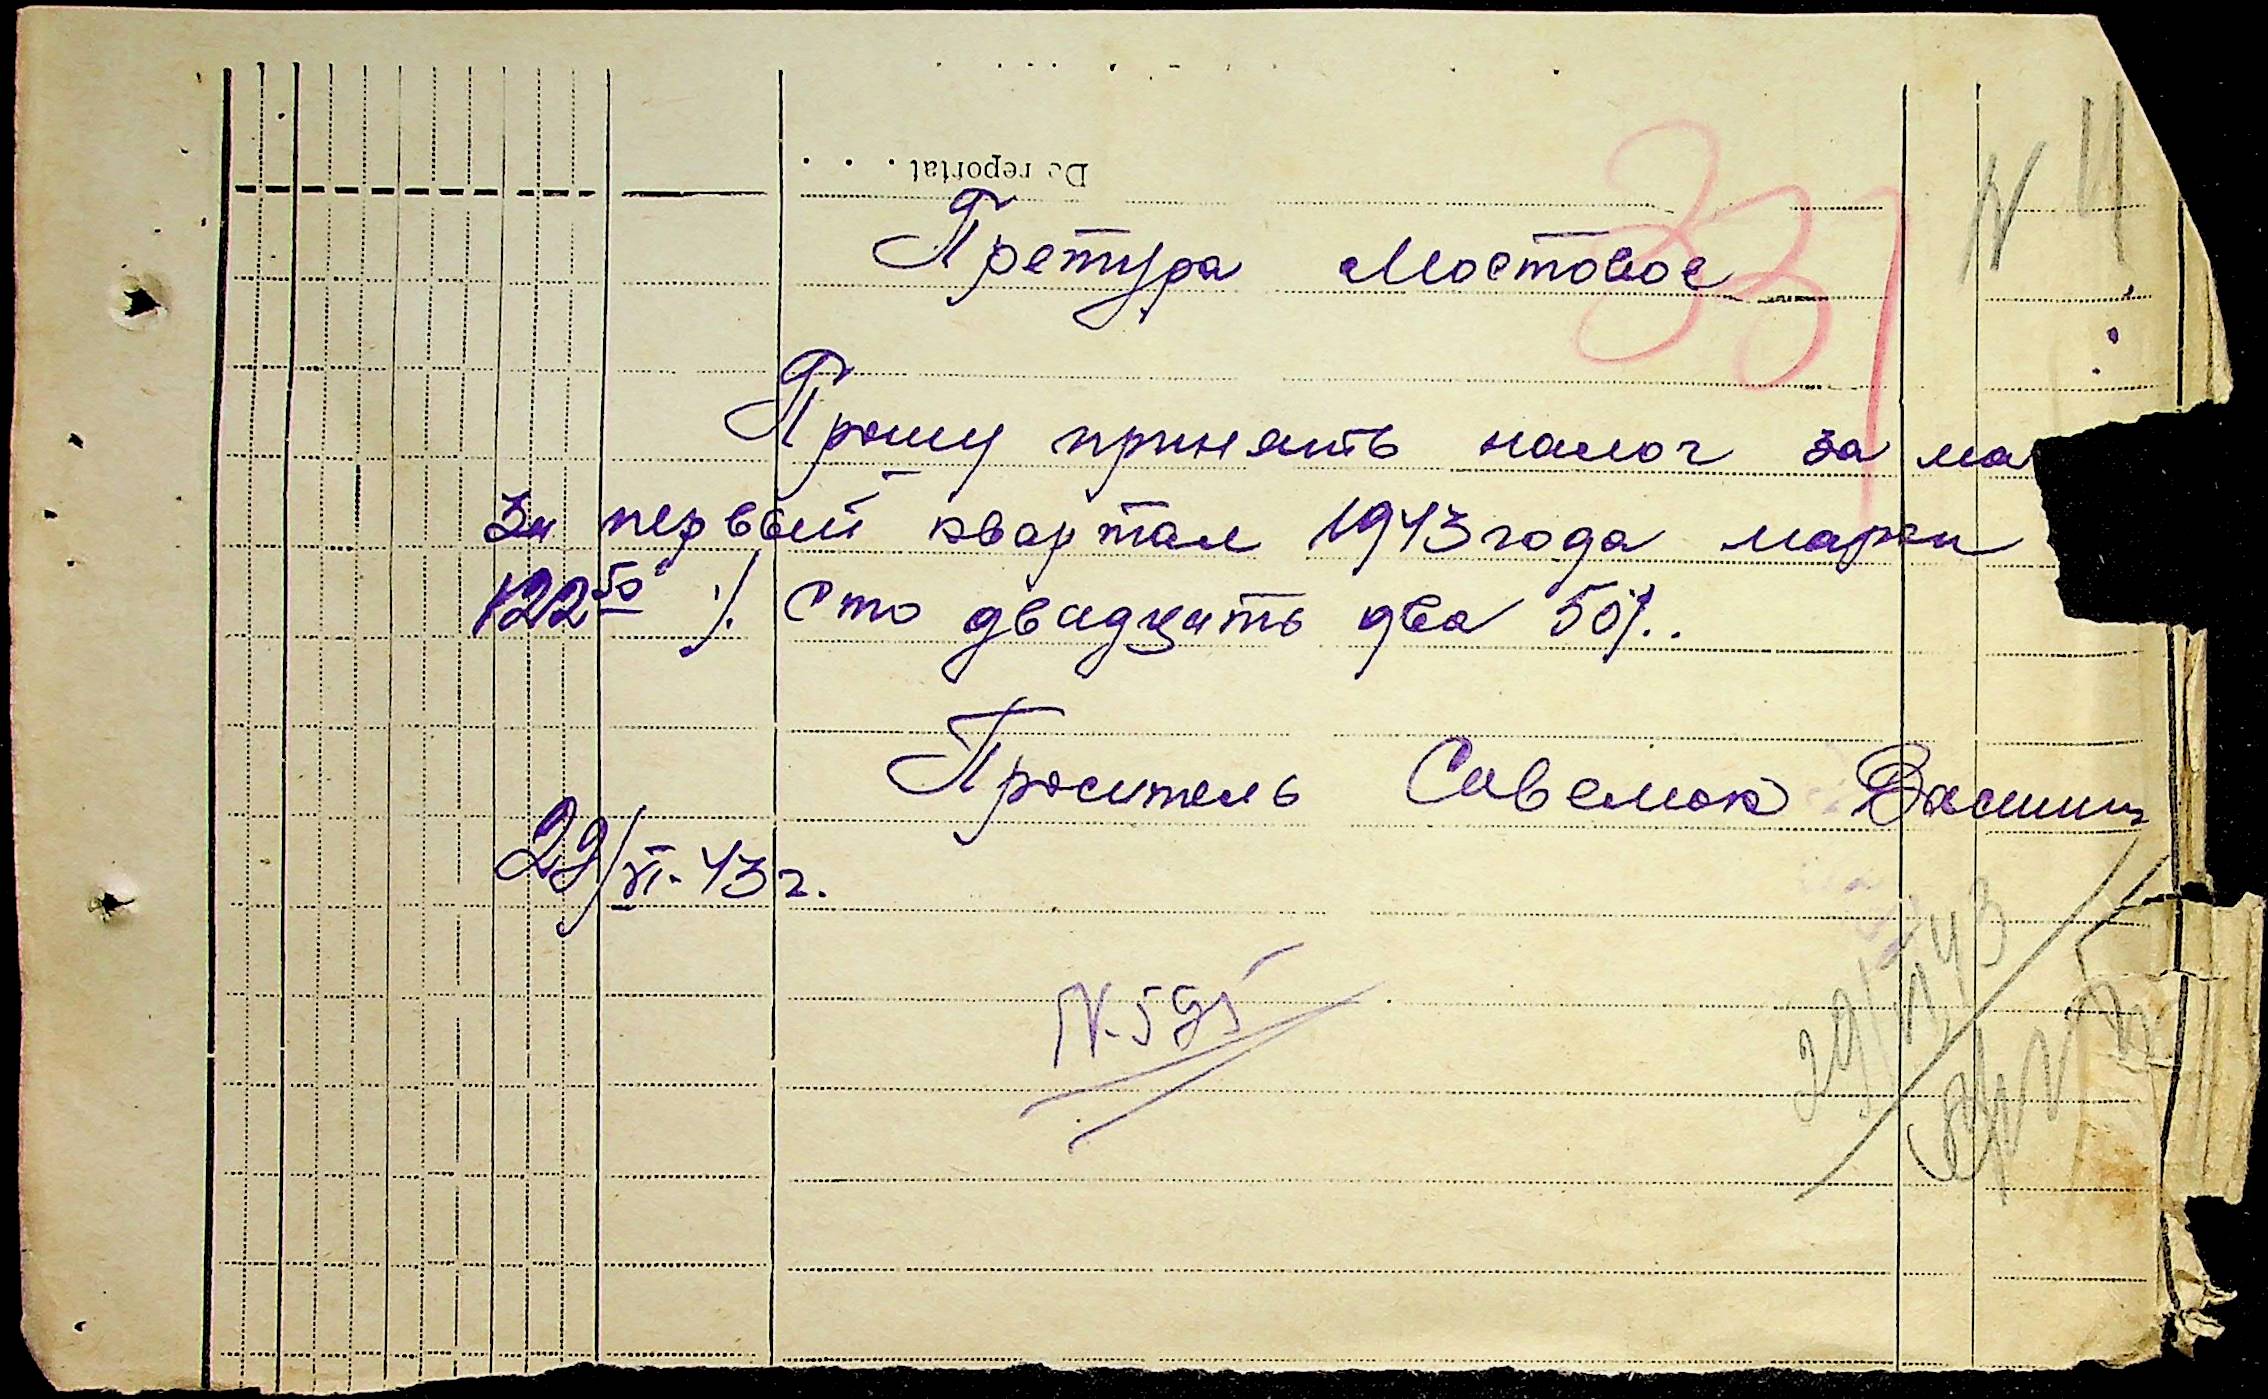 De reportat . . .
331
N 4
Претура Мостовое
Прошу принять налог за ма
За первый квартал 1943 года марки
122 50 ·/. Сто двадцать два 50/..
Проситель Савелюк Васили
29/VI-43 г.
29/VI 43
N. 595